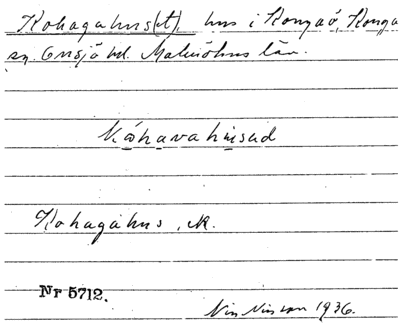 Kohagahus(et), hus i Kongaö, Konga
sn. Onsjö hd. Malmöhus län.
Kåhavahused
Kohagahus, ek.
Nr 5712.
Nils Nilsson 1936.